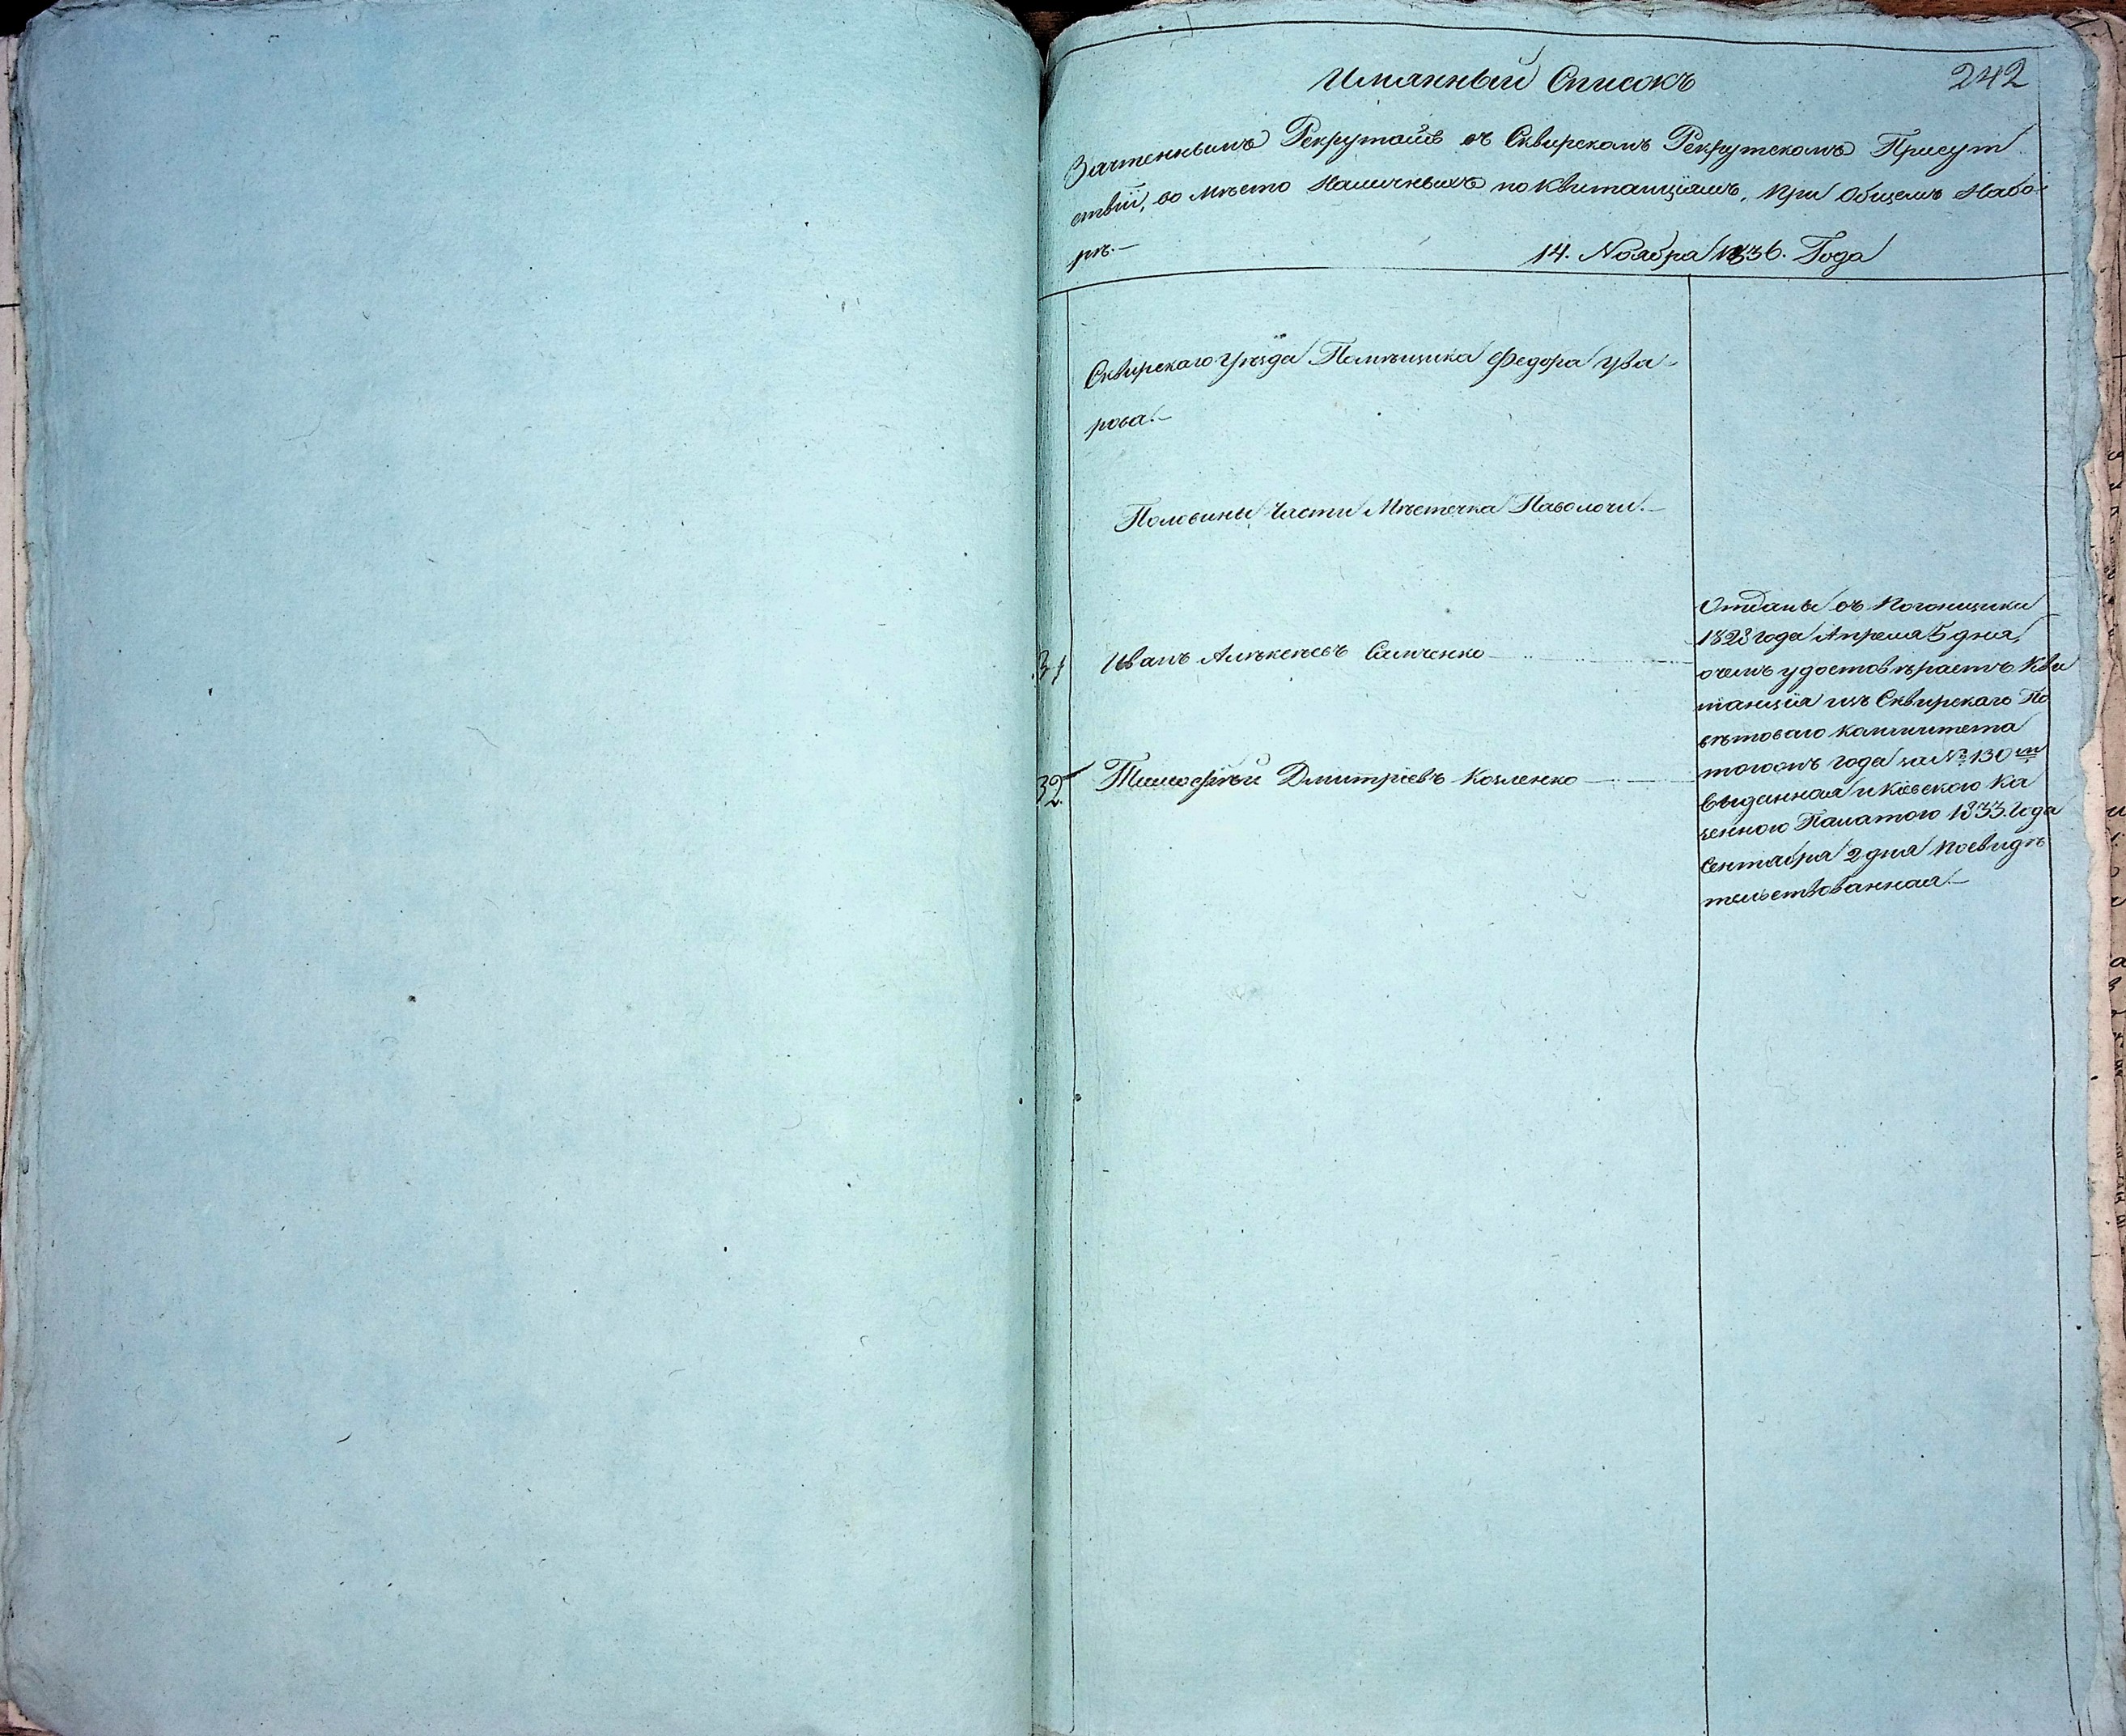 Имянный Списокъ
242
Зачтеннымъ Рекрутамъ въ Сквирскомъ Рекрутскомъ Присут
ствіи, во мѣсто Наличныхъ по квитанціямъ, при Общемъ Набо-
рѣ.—
14. Ноября 1836. Года
Сквирскаго уѣзда Помѣщика Федора Ува-
рова.—
Половины Части Мѣстечка Паволочи.—
31 Иванъ Алѣксѣевъ Самченко
32. Тимофѣй Дмитріевъ Козленко
Отданы въ погонщики
1828 года Апреля 5 дня,
очемъ удостовѣраетъ Кви
танція изъ Сквирскаго По
вѣтоваго коммитета
тогожъ года за № 130м
выданная и Кіевскою Ка
зенною Палатою 1833. Года
Сентября 2 дня посвидѣ
тельствованная.—